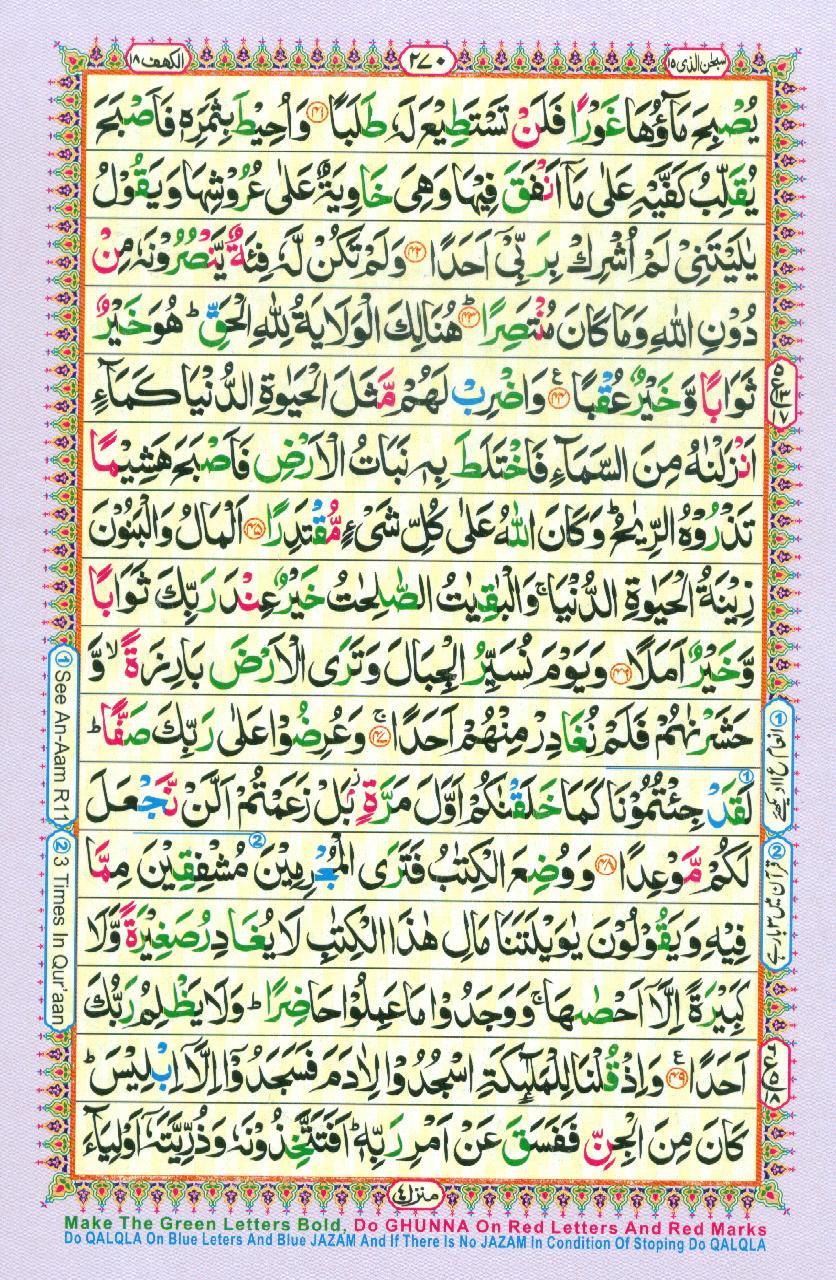 الكهف ١٨
٢٧٠
سبحٰن الذى ١٥
يُصْبِحَ مَآؤُهَا غَوْرًا فَلَنْ تَسْتَطِيْعَ لَهٗ طَلَبًا ﴿۴۱﴾ وَاُحِيْطَ بِثَمَرِهٖ فَاَصْبَحَ
يُقَلِّبُ كَفَّيْهِ عَلٰى مَاۤ اَنْفَقَ فِيْهَا وَهِىَ خَاوِيَةٌ عَلٰى عُرُوْشِهَا وَيَقُوْلُ
يٰلَيْتَنِىْ لَمْ اُشْرِكْ بِرَبِّىْۤ اَحَدًا ﴿۴۲﴾ وَلَمْ تَكُنْ لَّهٗ فِئَةٌ يَّنْصُرُوْنَهٗ مِنْ
دُوْنِ اللّٰهِ وَمَا كَانَ مُنْتَصِرًا ﴿۴۳﴾ؕ هُنَالِكَ الْوَلَايَةُ لِلّٰهِ الْحَقِّ ؕ هُوَ خَيْرٌ
ثَوَابًا وَّخَيْرٌ عُقْبًا ﴿۴۴﴾ۧ وَاضْرِبْ لَهُمْ مَّثَلَ الْحَيٰوةِ الدُّنْيَا كَمَآءٍ
اَنْزَلْنٰهُ مِنَ السَّمَآءِ فَاخْتَلَطَ بِهٖ نَبَاتُ الْاَرْضِ فَاَصْبَحَ هَشِيْمًا
تَذْرُوْهُ الرِّيٰحُ ؕ وَكَانَ اللّٰهُ عَلٰى كُلِّ شَىْءٍ مُّقْتَدِرًا ﴿۴۵﴾ اَلْمَالُ وَالْبَنُوْنَ
زِيْنَةُ الْحَيٰوةِ الدُّنْيَا ۚ وَالْبٰقِيٰتُ الصّٰلِحٰتُ خَيْرٌ عِنْدَ رَبِّكَ ثَوَابًا
وَّخَيْرٌ اَمَلًا ﴿۴۶﴾ وَيَوْمَ نُسَيِّرُ الْجِبَالَ وَتَرَى الْاَرْضَ بَارِزَةً ۙ وَّ
حَشَرْنٰهُمْ فَلَمْ نُغَادِرْ مِنْهُمْ اَحَدًا ﴿۴۷﴾ۚ وَعُرِضُوْا عَلٰى رَبِّكَ صَفًّا ؕ
لَقَدْ جِئْتُمُوْنَا كَمَا خَلَقْنٰكُمْ اَوَّلَ مَرَّةٍۭ ز بَلْ زَعَمْتُمْ اَلَّنْ نَّجْعَلَ
لَكُمْ مَّوْعِدًا ﴿۴۸﴾ وَوُضِعَ الْكِتٰبُ فَتَرَى الْمُجْرِمِيْنَ مُشْفِقِيْنَ مِمَّا
فِيْهِ وَيَقُوْلُوْنَ يٰوَيْلَتَنَا مَالِ هٰذَا الْكِتٰبِ لَا يُغَادِرُ صَغِيْرَةً وَّلَا
كَبِيْرَةً اِلَّاۤ اَحْصٰىهَا ۚ وَوَجَدُوْا مَا عَمِلُوْا حَاضِرًا ؕ وَلَا يَظْلِمُ رَبُّكَ
اَحَدًا ﴿۴۹﴾ۧ وَاِذْ قُلْنَا لِلْمَلٰٓئِكَةِ اسْجُدُوْا لِاٰدَمَ فَسَجَدُوْۤا اِلَّاۤ اِبْلِيْسَ ؕ
كَانَ مِنَ الْجِنِّ فَفَسَقَ عَنْ اَمْرِ رَبِّهٖ ؕ اَفَتَتَّخِذُوْنَهٗ وَذُرِّيَّتَهٗۤ اَوْلِيَآءَ
① See An-Aam R11
② 3 Times In Qur'aan
① انعام ع ۱۱ دیکھئے
② قرآن میں ۳ بار ہے
منزل ٤
Make The Green Letters Bold, Do GHUNNA On Red Letters And Red Marks
Do QALQLA On Blue Leters And Blue JAZAM And If There Is No JAZAM In Condition Of Stoping Do QALQLA